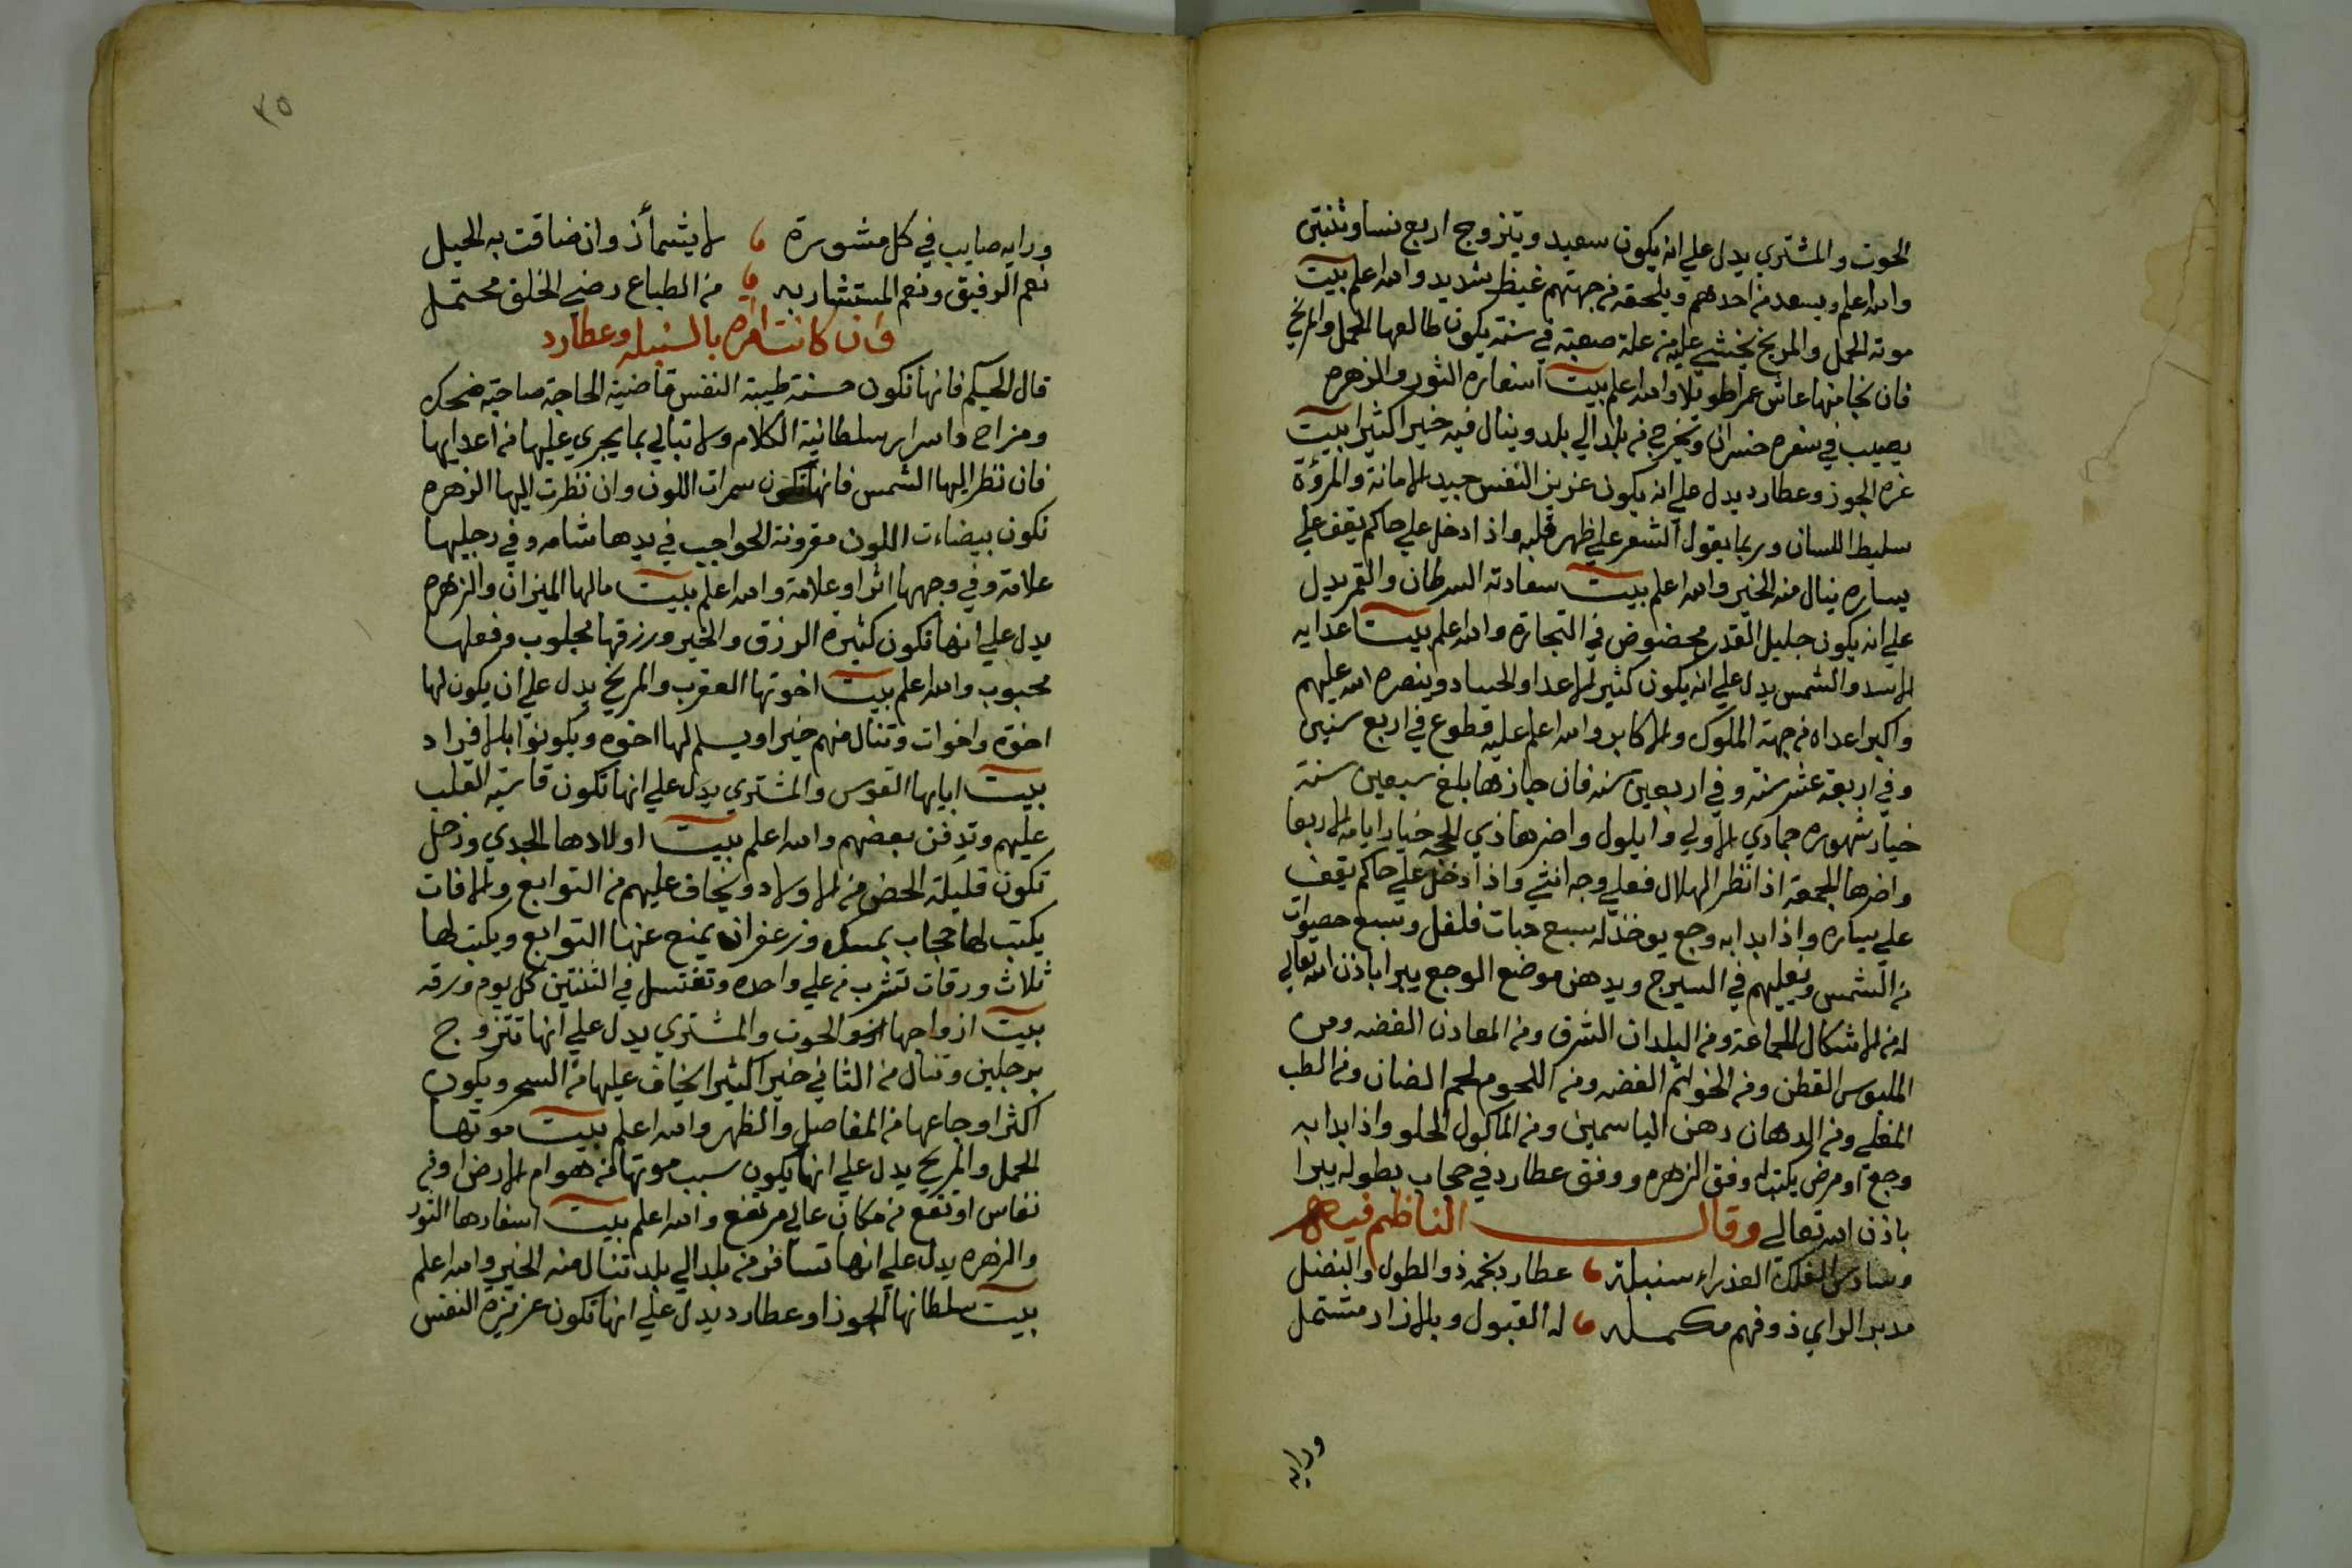 الحوت والمشتري يدل علي انه يكون سعيد ويتزوج اربع نسا وثنتين
والله اعلم ويسعد من احدهم ويلحقه من جهتهم غيظ شديد والله اعلم بيت
موته الحمل والمريخ يخشي عليه من علة صعبة في سنة يكون طالعها الحمل والمريخ
فان نجا منها عاش عمرا طويلا والله اعلم بيت اسفاره الثور والزهره
يصيب في سفره خسران ويخرج من بلد الي بلد وينال فيه خيرا كثيرا بيت
عزه الجوز وعطارد يدل علي انه يكون عزيز النفس جيد الامانة والمرؤة
سليط اللسان وربما يقول الشعر علي ظهر قلبه واذا دخل علي حاكم يقف علي
يساره ينال منه الخير والله اعلم بيت سعادته السرطان والقمر يدل
علي انه يكون جليل القدر محضوض في التجارة والله اعلم بيت اعدايه
الاسد والشمس يدل علي انه يكون كثير الاعدا والحساد وينصره الله عليهم
واكبر اعداه من جهة الملوك والاكابر والله اعلم عليه قطوع في اربع سنين
وفي اربعة عشر سنة وفي اربعين سنه فان جازها بلغ سبعين سنة
خيار شهوره جمادي الاولي وايلول واضرها ذي الحجه خيار ايامه الاربعا
واضرها الجمعة اذا نظر الهلال فعلي وجه انثي واذا دخل علي حاكم يقف
علي يساره واذا بدا به وجع يوخذ له سبع حبات فلفل وسبع حصوات
من الشمس ويغليهم في السيرج ويدهن موضع الوجع يبرا باذن الله تعالي
له من الاشكال الجماعة ومن البلدان الشرق ومن المعادن الفضه ومن
الملبوس القطن ومن الخواتم الفضه ومن اللحوم لحم الضان ومن الطب
المغلي ومن الدهان دهن الياسمين ومن الماكول الحلو واذا بدا به
وجع او مرض يكتب له وفق الزهره ووفق عطارد في حجاب بطوله يبرا
باذن الله تعالي وقال الناظم فيه
وسادس الفلك العذراء سنبلة عطارد نجمه ذو الطول والفضل
مدبر الراي ذو فهم مكمله له القبول وبالازار مشتمل
ورايه
٣٥
ورايه صايب في كل مشورة لا يشمأز وان ضاقت به الحيل
نعم الرفيق ونعم المستشار به من الطباع رضي الخلق محتمل
وان كانت امراه بالسنبله وعطارد
قال الحيكم فانها تكون حسنة طيبة النفس قاضية الحاجة صاحبة ضحك
ومزاح واسرار سلطانية الكلام ولا تبالي بما يجري عليها من اعدايها
فان نظر اليها الشمس فانها تكون سمرات اللون وان نظرت اليها الزهره
تكون بيضاءت اللون مقرونة الحواجب في يدها شامه وفي رجليها
علامة وفي وجهها اثر او علامة والله اعلم بيت مالها الميزان والزهره
يدل علي انها تكون كثيرة الرزق والخير ورزقها مجلوب وفعلها
محبوب والله اعلم بيت اخوتها العقرب والمريخ يدل علي ان يكون لها
اخوة واخوات وتنال منهم خيرا ويسلم لها اخوه ويكونوا بالافراد
بيت ابايها القوس والمشتري يدل علي انها تكون قاسية القلب
عليهم وتدفن بعضهم والله اعلم بيت اولادها الجدي وزحل
تكون قليلة الحض من الاولاد ويخاف عليهم من التوابع والافات
يكتب لها حجاب بمسك وزعفران يمنع عنها التوابع ويكتب لها
ثلاث ورقات تشرب من علي واحده وتغتسل في الثنتين كل يوم ورقه
بيت ازواجها الحوت والمشتري يدل علي انها تتزوج
برجلين وتنال من الثاني خيرا كثيرا يخاف عليها من السحر ويكون
اكثر اوجاعها من المفاصل والظهر والله اعلم بيت موتها
الحمل والمريخ يدل علي انها يكون سبب موتها من هوام الارض او من
نفاس او تقع من مكان عالي مرتفع والله اعلم بيت اسفارها الثور
والزهره يدل علي انها تسافر من بلد الي بلد تنال منه الخير والله اعلم
بيت سلطانها الجوزا وعطارد يدل علي انها تكون عزيزة النفس